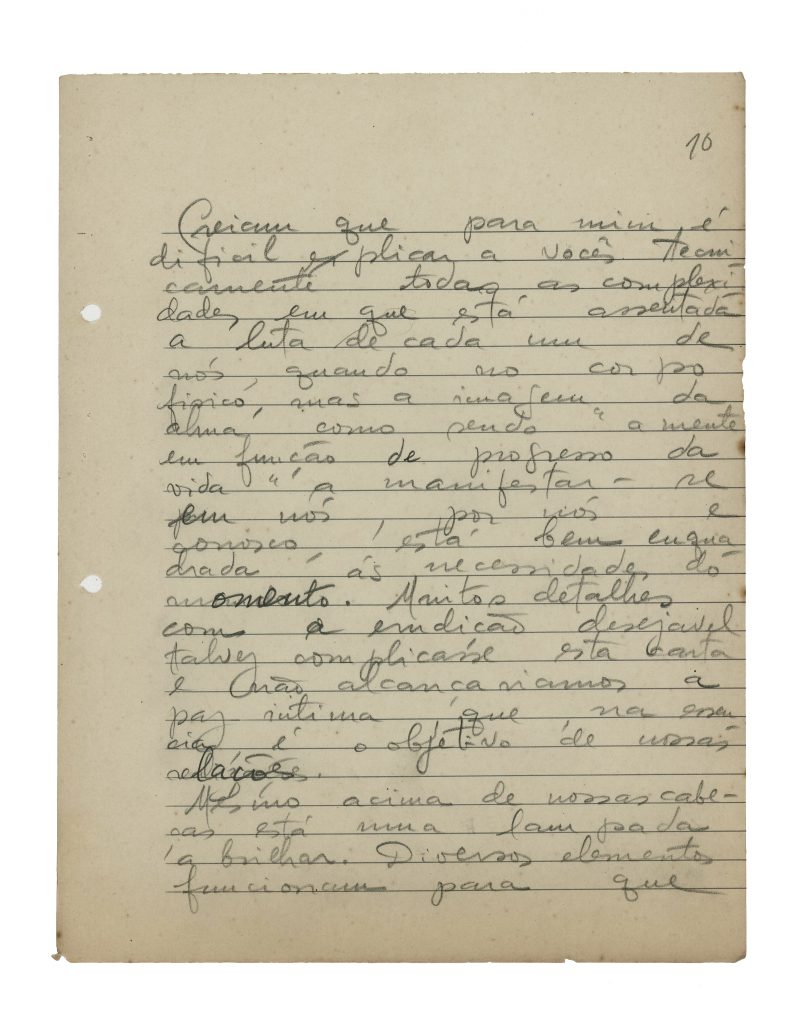 10
Creiam que para mim é
dificil explicar a vocês tecni
camente todas as complexi
dades em que está assentada
a luta de cada um de
nós, quando no corpo
fisico, mas a imagem da
alma, como sendo "a mente
em função de progresso da
vida" a manifestar-se
em nós, por nós e
conosco, está bem enqua
drada ás necessidades do
momento. Muitos detalhes
com a erudição desejavel
talvez complicasse esta carta
e não alcançariamos a
paz intima, que, na essen
cia, é o objetivo de nossas
relações.
Mesmo acima de nossas cabe-
ças está uma lampada
a brilhar. Diversos elementos
funcionam para que